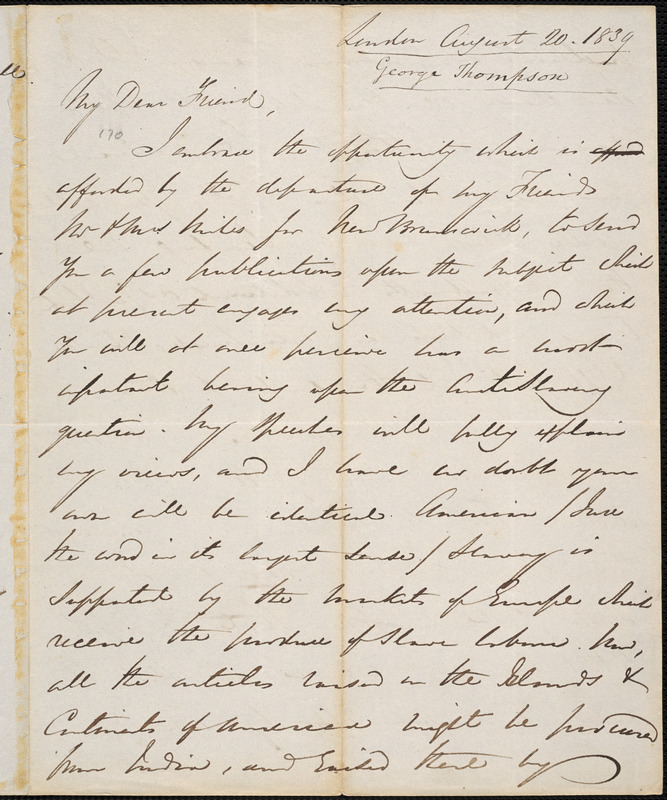 London August 20. 1839
George Thompson
My Dear Friend,
170
I embrace the opportunity which is
afforded by the departure of my Friends
Mr & Mrs Miles for New Brunswick, to send
you a few publications upon the subject which
at present engages my attention, and which
you will at once perceive has a most
important bearing upon the AntiSlavery
question. My speeches will fully explain
my views, and I have no doubt your
own will be identical. American /I use
the word in its largest sense/ Slavery is
supported by the markets of Europe which
receive the produce of Slave labour. Now,
all the articles raised in the Islands &
Continents of America might be procured
from India, and raised there by